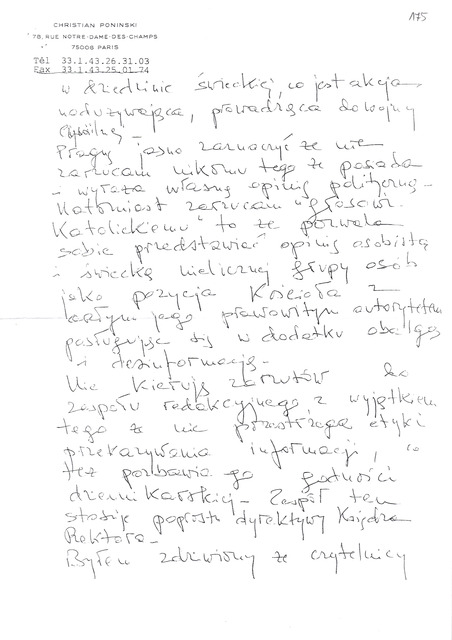 175
CHRISTIAN PONINSKI
78, RUE NOTRE-DAME-DES-CHAMPS
75006 PARIS
Tél 33.1.43.26.31.03
Fax 33.1.43.25.01.24
w dziedzinie świeckiej, co jest akcją
nadużywającą, prowadzącą do wojny
cywilnej -
Pragnę jasno zaznaczyć że nie
zarzucam nikomu tego że posiada
- i wyraża własną opinię polityczną -
Natomiast zarzucam "głosowi
Katolickiemu" to że pozwala
sobie przedstawiać opinię osobistą
i świecką nielicznej grupy osób
jako pozycja Kościoła z
całym jego prawowitym autorytetem
posługując się w dodatku obelgą
- i dezinformacją -
Nie kieruję zarzutów do
zespołu redakcyjnego z wyjątkiem
tego że nie przestrzega etyki
przekazywania informacji, co
też pozbawia go godności
dziennikarskiej - Zespół ten
stosuje poprostu dyrektywy Księdza
Rektora -
Byłem zdziwiony że czytelnicy